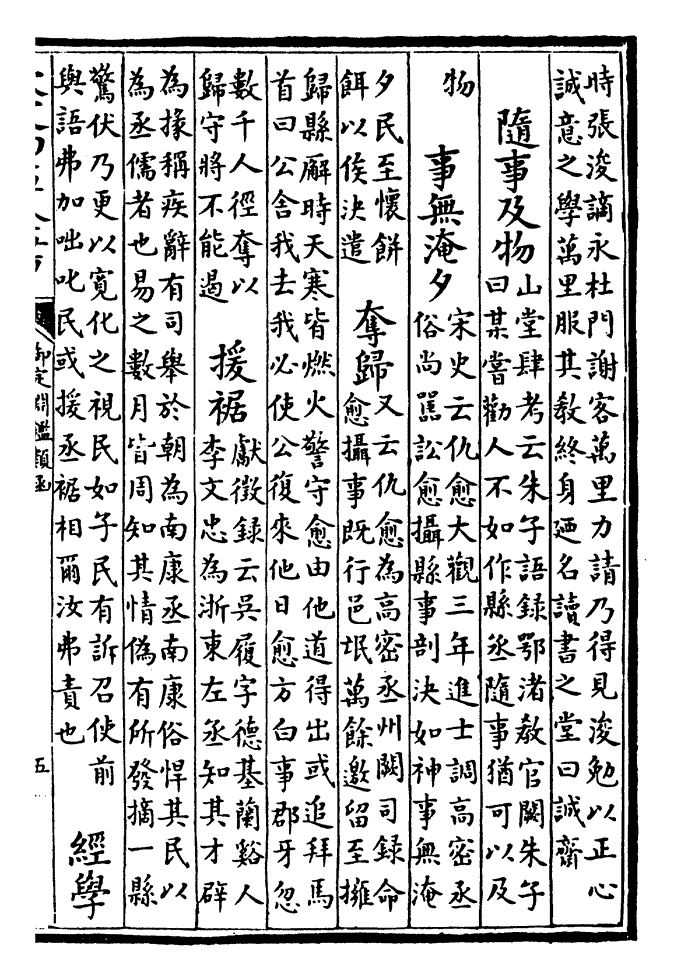 時張浚謫永杜門謝客萬里力請乃得見浚勉以正心
誠意之學萬里服其教終身廼名讀書之堂曰誠齋
隨事及物
山堂肆考云朱子語錄鄂渚教官闕朱子
曰某嘗勸人不如作縣丞隨事猶可以及
物
事無淹夕
宋史云仇愈大觀三年進士調高密丞
俗尚嚚訟愈攝縣事剖決如神事無淹
夕民至懷餅
餌以俟決遣
奪歸
又云仇愈為高密丞州闕司錄命
愈攝事既行邑氓萬餘邀留至擁
歸縣廨時天寒皆燃火警守愈由他道得出或追拜馬
首曰公舍我去我必使公復來他日愈方白事郡牙忽
數千人徑奪以
歸守將不能遏
援裾
獻徵錄云吳履字德基蘭谿人
李文忠為浙東左丞知其才辟
為掾稱疾辭有司舉於朝為南康丞南康俗悍其民以
為丞儒者也易之數月皆周知其情偽有所發摘一縣
驚伏乃更以寬化之視民如子民有訴召使前
與語弗加咄叱民或援丞裾相爾汝弗責也
經學
御定淵鑑類函
五